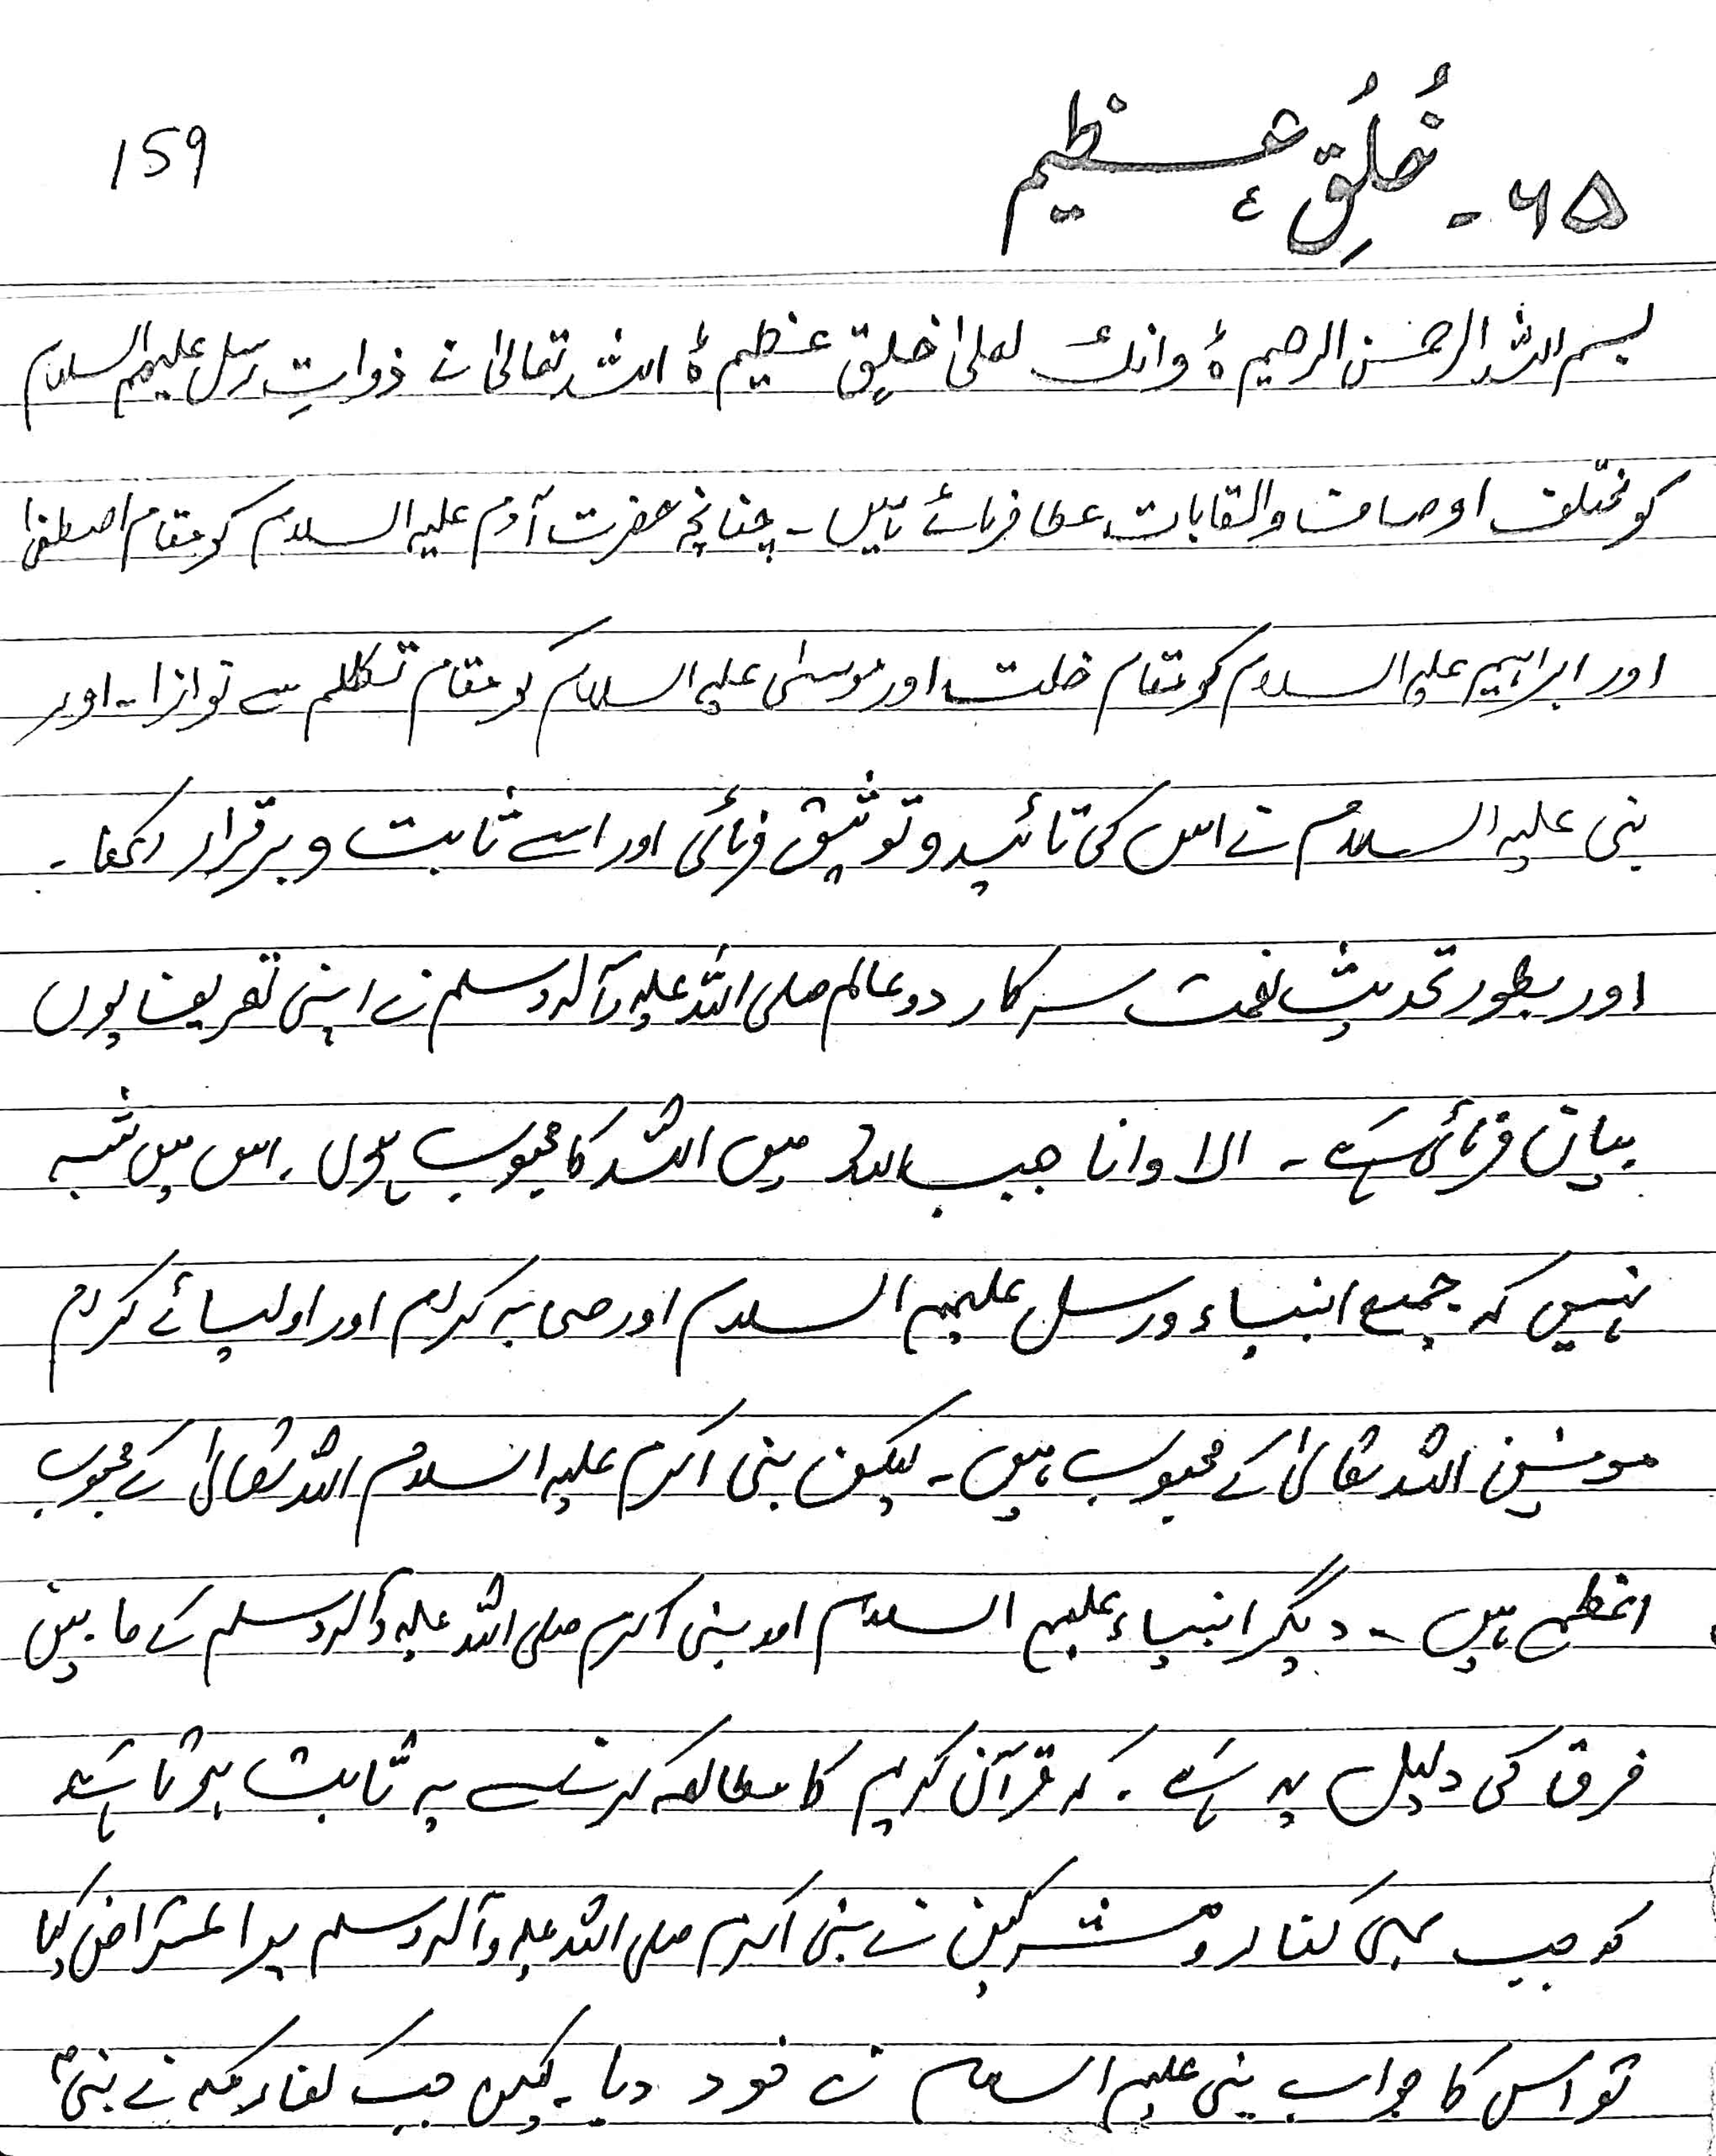 159
۶۵۔ خُلُقِ عظیم
بسم اللہ الرحمٰن الرحیم ہ وانک لعلیٰ خلق عظیم ہ اللہ تعالیٰ نے ذواتِ رسل علیہم السلام
کو مختلف اوصاف والقابات عطا فرمائے ہیں ۔ چنانچہ حضرت آدم علیہ السلام کو مقام اصطفیٰ
اور ابراہیم علیہ السلام کو مقام خلت اور موسیٰ علیہ السلام کو مقام تکلم سے نوازا ۔ اور
نبی علیہ السلام نے اس کی تائید و توثیق فرمائی اور اسے ثابت و برقرار رکھا ۔
اور بطور تحدیثِ نعمت سرکار دو عالم صلی اللہ علیہ وآلہ وسلم نے اپنی تعریف یوں
بیان فرمائی ہے ۔ الا وانا حبیب اللہ میں اللہ کا محبوب ہوں ۔ اس میں شبہ
نہیں کہ جمیع انبیاء ورسل علیہم السلام اور صحابہ کرام اور اولیائے کرام
مومنین اللہ تعالیٰ کے محبوب ہیں ۔ لیکن نبی اکرم علیہ السلام اللہ تعالیٰ کے محبوب
اعظم ہیں ۔ دیگر انبیاء علیہم السلام اور نبی اکرم صلی اللہ علیہ وآلہ وسلم کے مابین
فرق کی دلیل یہ ہے ۔ کہ قرآن کریم کا مطالعہ کرنے سے یہ ثابت ہوتا ہے
کہ جب بھی کفار و مشرکین نے نبی اکرم صلی اللہ علیہ وآلہ وسلم پر اعتراض کیا
تو اس کا جواب نبی علیہ السلام نے خود دیا ۔ لیکن جب کفار مکہ نے نبیؐ